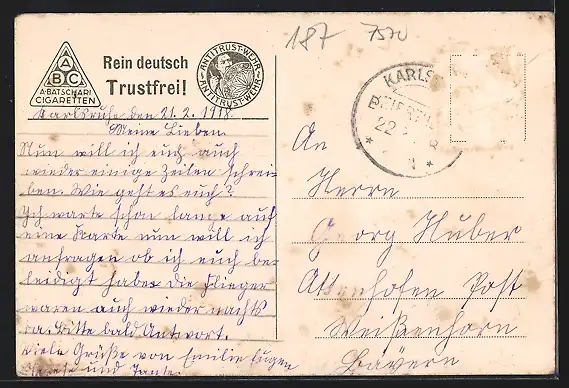 187 7570
A
B C
A·BATSCHARI
CIGARETTEN
Rein deutsch
Trustfrei!
ANTITRUST-WEHR
ANTITRUST-WEHR
Karlsruhe den 21.2.1918.
Meine Lieben.
Nun will ich euch auch
wieder einige Zeilen schrei-
ben. Wie geht es euch?
Ich warte schon lange auf
eine Karte nun will ich
anfragen ob ich euch be-
leidigt habe die Flieger
waren auch wieder nachts
da. Bitte bald Antwort.
Viele Grüße von Emilie Eugen
und Tante.
KARLS
22
An
Herrn
Georg Huber
Attenhofen Post
Weißenhorn
Bayern